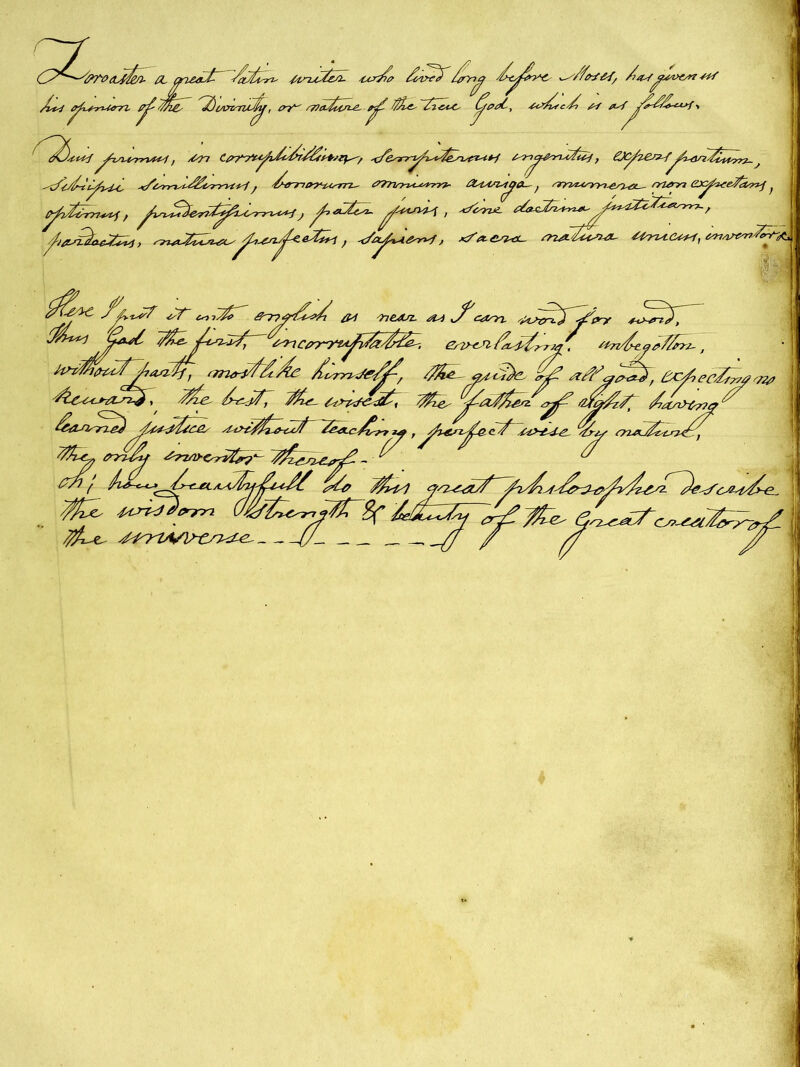 Zoroaster a great latin writer who lived long before Moses, has given us
his opinion of the Divinity, or nature of the true God, which is as follows.
Duis primus, in corruptibillimus, Sempiternus ingenitus, Expers partium,
Sibiipsi Simillimus, bonorum omnium auriga, munera non expectans,
optimus, prudentissimus, pater juris, Sine doctrina justitiam,
pardoctus, natura perfectus, Sapiens, sacra natura unicus, inventor
Here I put it into english as near as I can word for word,
Thus God the first, incorruptable, everlasting, unbegotton,
without parts, most like himself, the guide of all good, Expecting no
Reward, the best, the wisest, the father of right, having
learned justice without teaching, perfect wise by nature,
the only inventor thereof -
oh! how beautyfull do this great philosopher describe
the wisdom Strength & beauty of the Great creator of
the universe